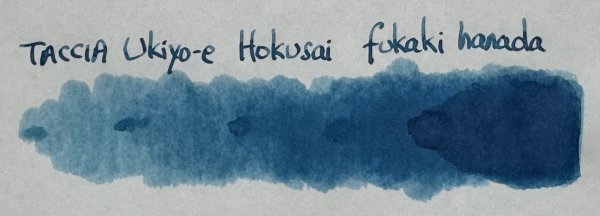 TACCIA Ukiyo-e Hokusai fukaki hanada